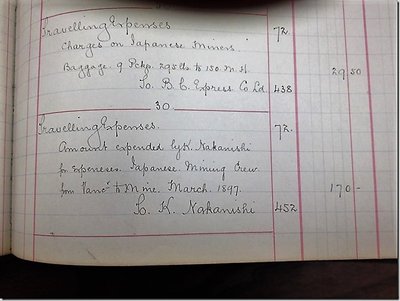 Travelling Expenses 72.
Charges on Japanese Miners'
Baggage. 9 Pckgs. 295 lbs to 150. M. H. 29.50
To. B. C. Express Co Ld. 438
30
Travelling Expenses. 72.
Amount expended by K. Nakanishi
for expenses. Japanese Mining Crew
from Vanc' to Mine. March. 1897. 170 -
To. K. Nakanishi 452